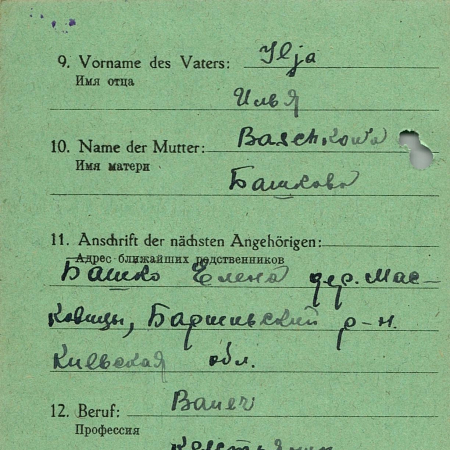 9. Vorname des Vaters: Ilja
Имя отца
Илья
10. Name der Mutter: Baschkowa
Имя матери
Башкова
11. Anschrift der nächsten Angehörigen:
Адрес ближайших родственников
Башко Елена дер. Мас-
ковицы, Барышевский р-н.
Киевская обл.
12. Beruf: Bauer
Профессия
Крестьянин